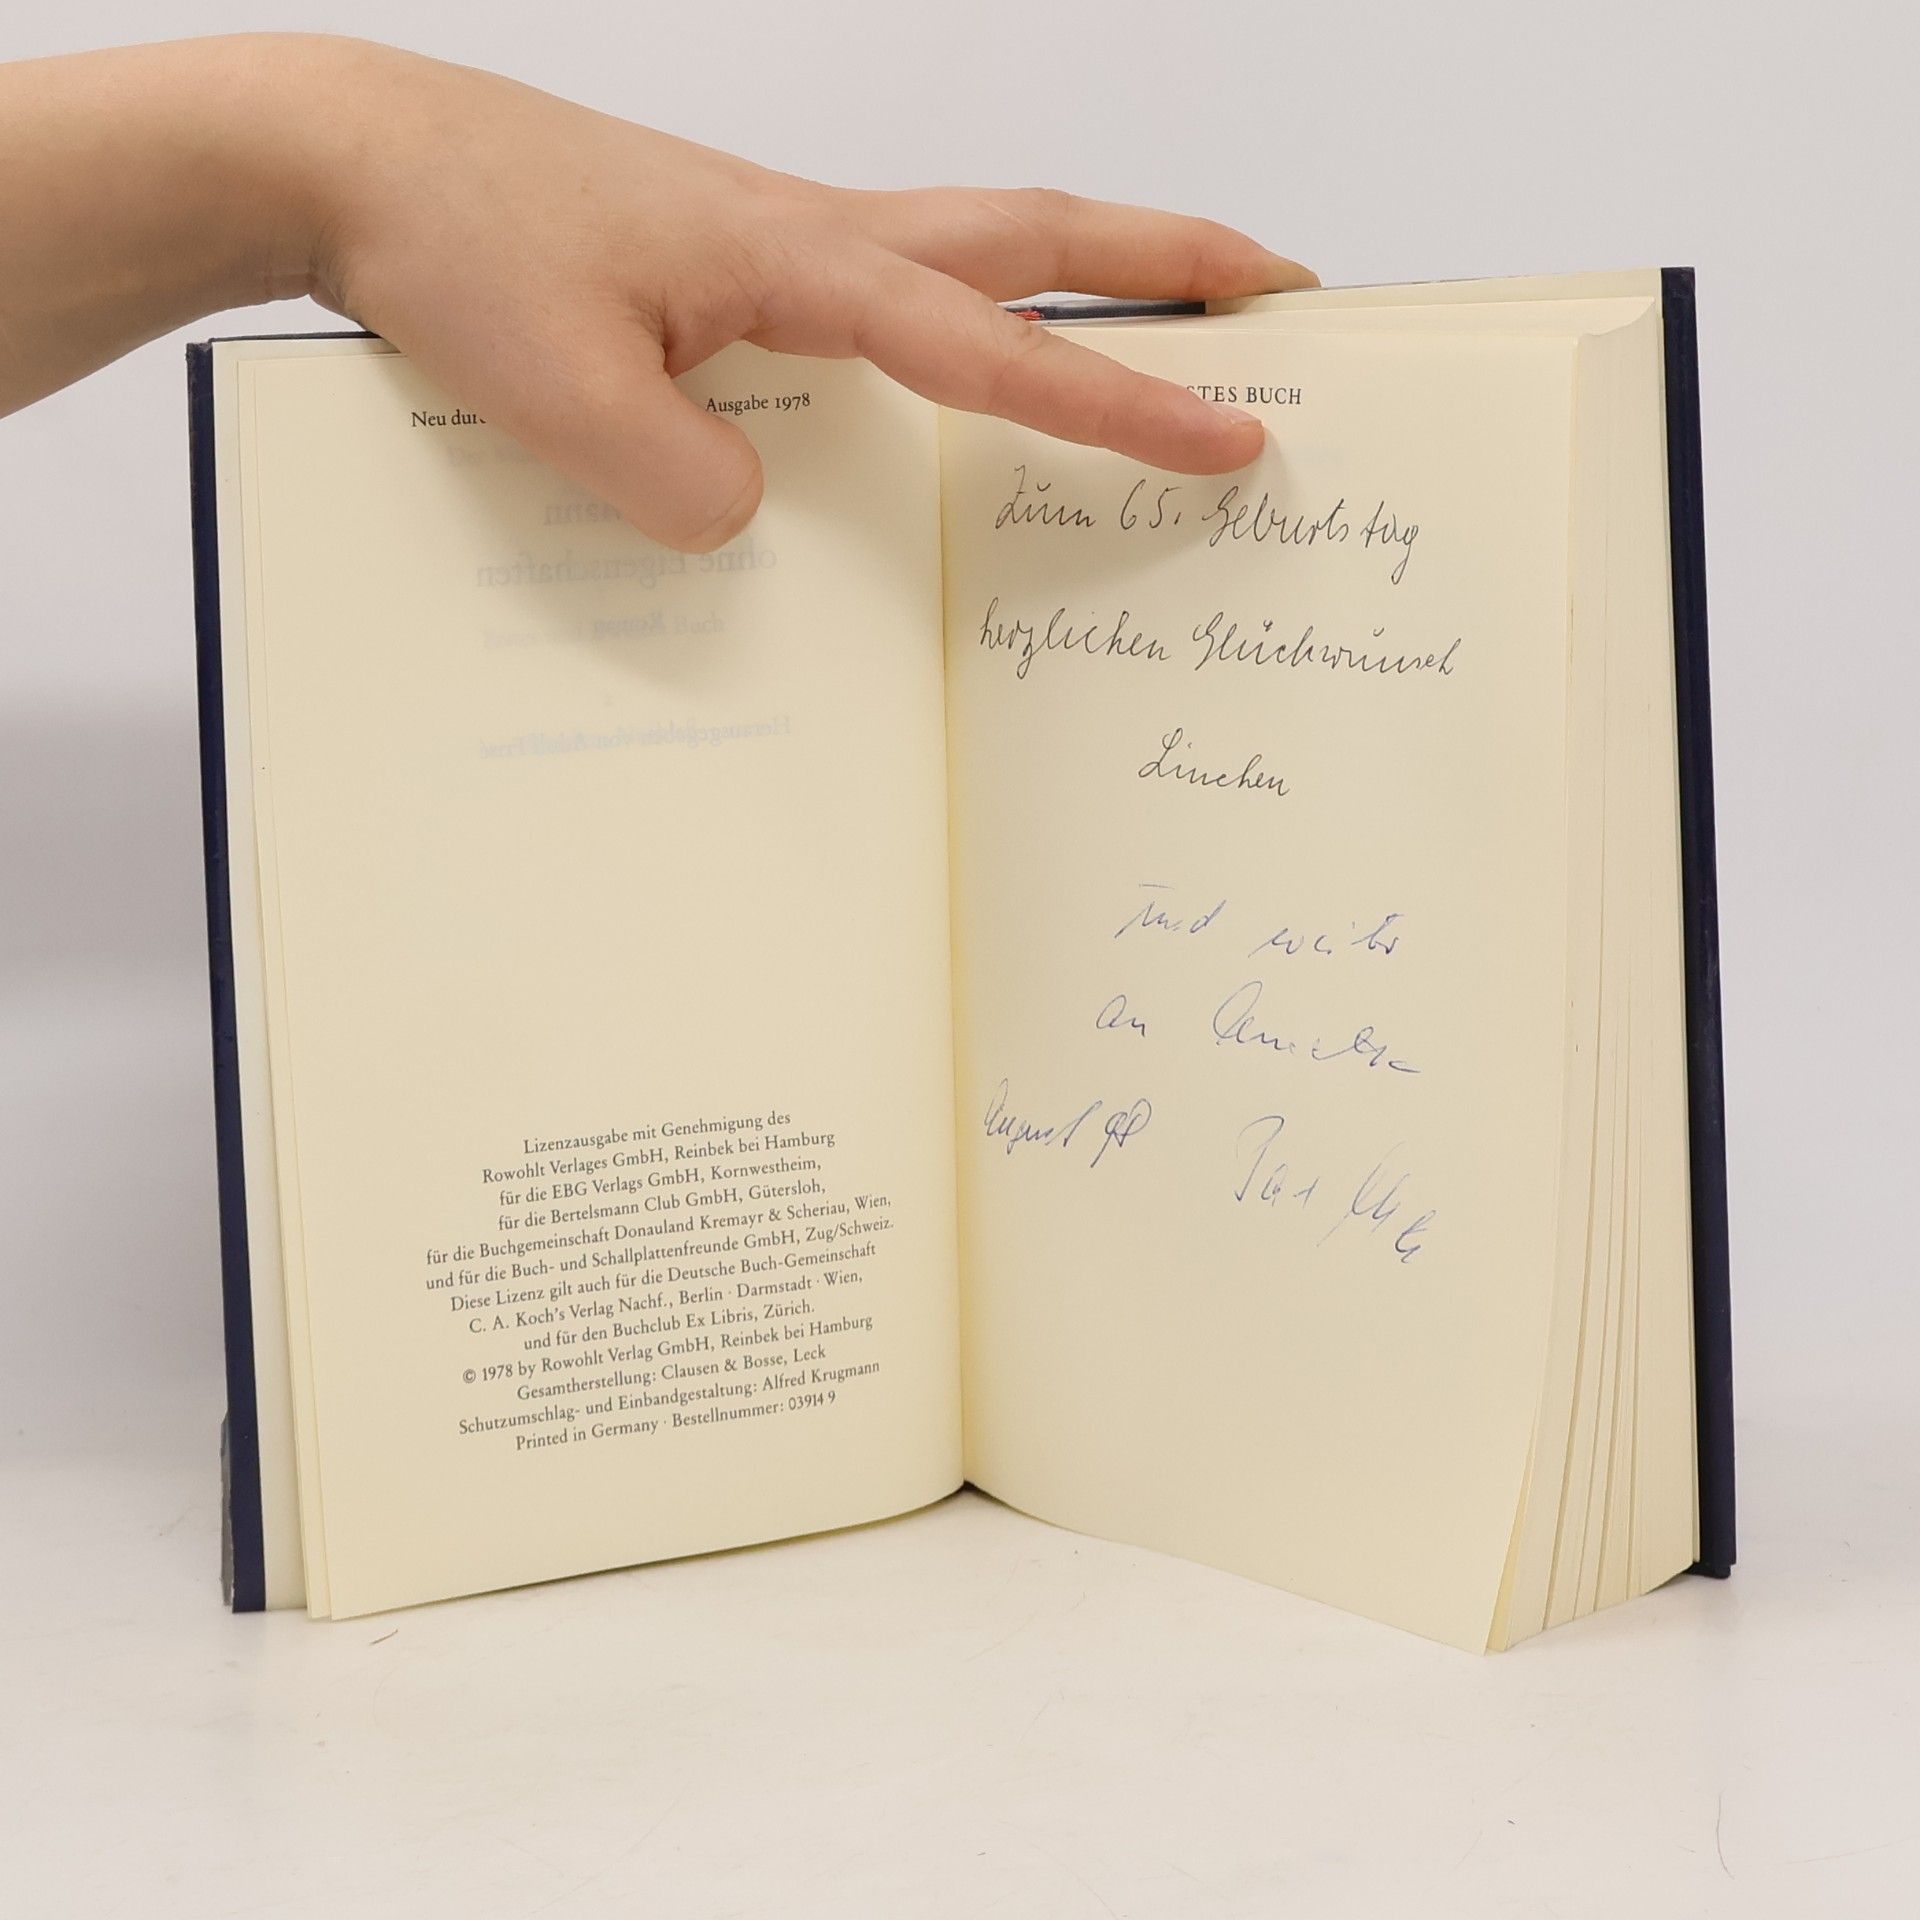 Neu dur
Ausgabe 1978
Lizenzausgabe mit Genehmigung des
Rowohlt Verlages GmbH, Reinbek bei Hamburg
für die EBG Verlags GmbH, Kornwestheim,
für die Bertelsmann Club GmbH, Gütersloh,
für die Buchgemeinschaft Donauland Kremayr & Scheriau, Wien,
und für die Buch- und Schallplattenfreunde GmbH, Zug/Schweiz.
Diese Lizenz gilt auch für die Deutsche Buch-Gemeinschaft
C. A. Koch's Verlag Nachf., Berlin · Darmstadt · Wien,
und für den Buchclub Ex Libris, Zürich.
© 1978 by Rowohlt Verlag GmbH, Reinbek bei Hamburg
Gesamtherstellung: Clausen & Bosse, Leck
Schutzumschlag- und Einbandgestaltung: Alfred Krugmann
Printed in Germany · Bestellnummer: 03914 9
STES BUCH
Zum 65. Geburtstag
herzlichen Glückwunsch
Linchen
und weiter
an
August